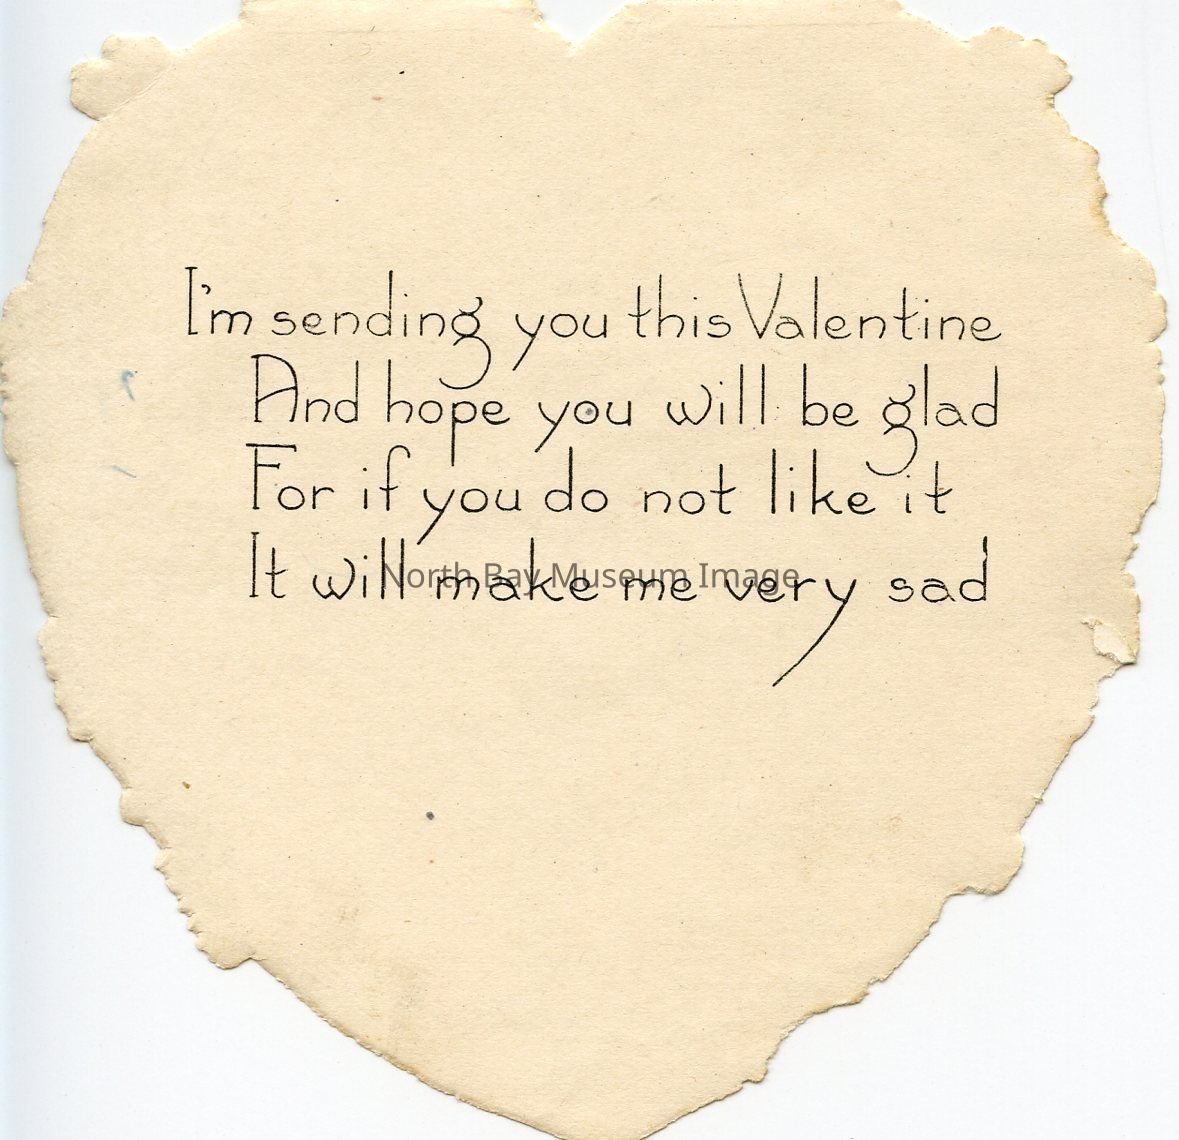 I'm sending you this Valentine
And hope you will be glad
For if you do not like it
It will make me very sad
North Bay Museum Image